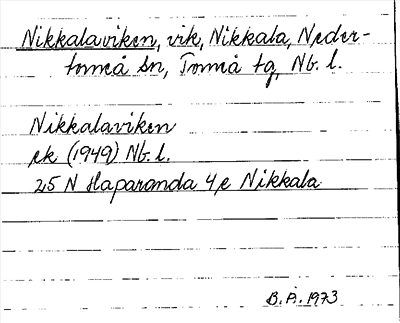 Nikkalaviken, vik, Nikkala, Neder-
torneå sn, Torneå tg, Nb. l.
Nikkalaviken
ek (1949) Nb. l.
25 N Haparanda 4 e Nikkala
B.Å. 1973